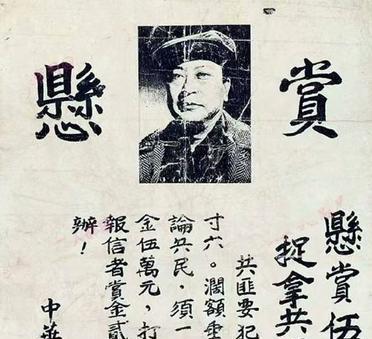 懸賞
懸賞伍
捉拿共
共匪要犯
寸六。濶額垂
論兵民,須一
金伍萬元,打
報信者賞金貳
辦!
中華